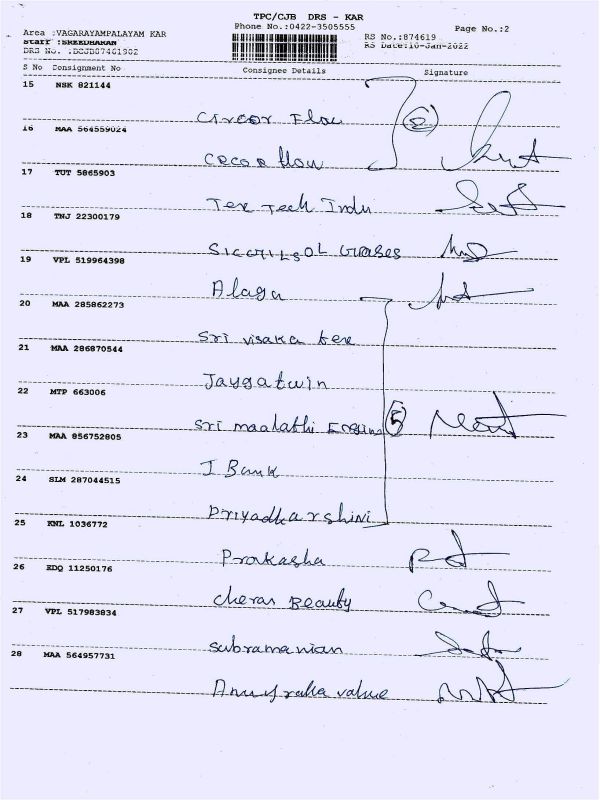 TPC/CJB DRS - KAR
Phone No.:0422-3505555
Page No.:2
Area :VAGARAYAMPALAYAM KAR
RS No.:874619
Staff :SREEDHARAN
RS Date:10-Jan-2022
DRS No. :BCJB87461902
S No Consignment No Consignee Details Signature
15 NSK 821144
Circor Flow (2)
16 MAA 564559024
Cocoo flow
17 TUT 5865903
Tex Tech Indu
18 TNJ 22300179
19 VPL 519964398
Alaga
20 MAA 285862273
Sri visaka tex
21 MAA 286870544
Jaygatwin
22 MTP 663006
Sri maalathi Engine (5)
23 MAA 856752805
J Bank
24 SLM 287044515
Priyadharshini
25 KNL 1036772
Prakasha
26 EDQ 11250176
Cheran Beauty
27 VPL 517983834
Subramanian
28 MAA 564957731
value